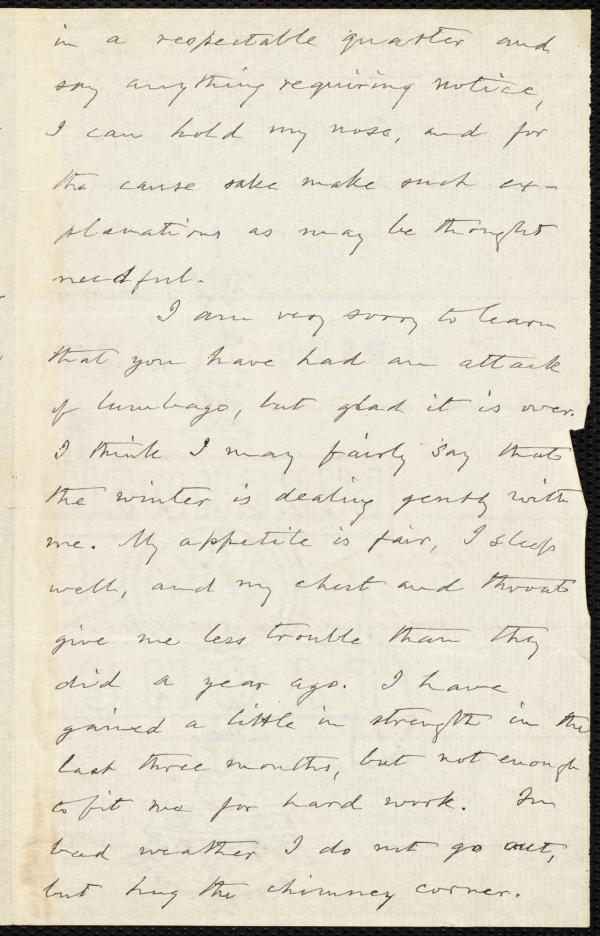 in a respectable quarter and
say anything requiring notice,
I can hold my nose, and for
the cause sake make such ex-
planations as may be thought
needful.
I am very sorry to learn
that you have had an attack
of lumbago, but glad it is over.
I think I may fairly say that
the winter is dealing gently with
me. My appetite is fair, I sleep
well, and my chest and throat
give me less trouble than they
did a year ago. I have
gained a little in strength in the
last three months, but not enough
to fit me for hard work. In
bad weather I do not go out,
but hug the chimney corner.